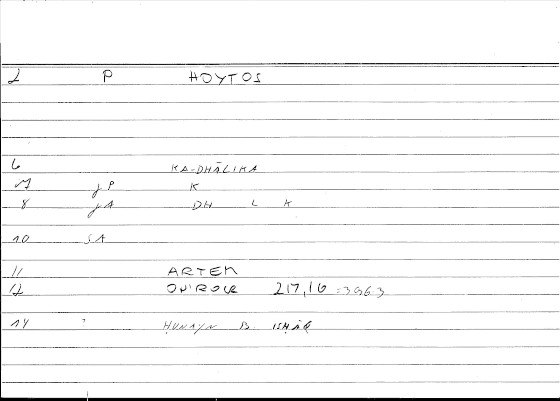 2 P HOYTOS
6 KA-DHĀLIKA
7 jP K
8 jA DH L K
10 SA
11 ARTEM
12 ONIROCR 217,16 = 3963
14 ? ḤUNAYN B. ISḤĀQ